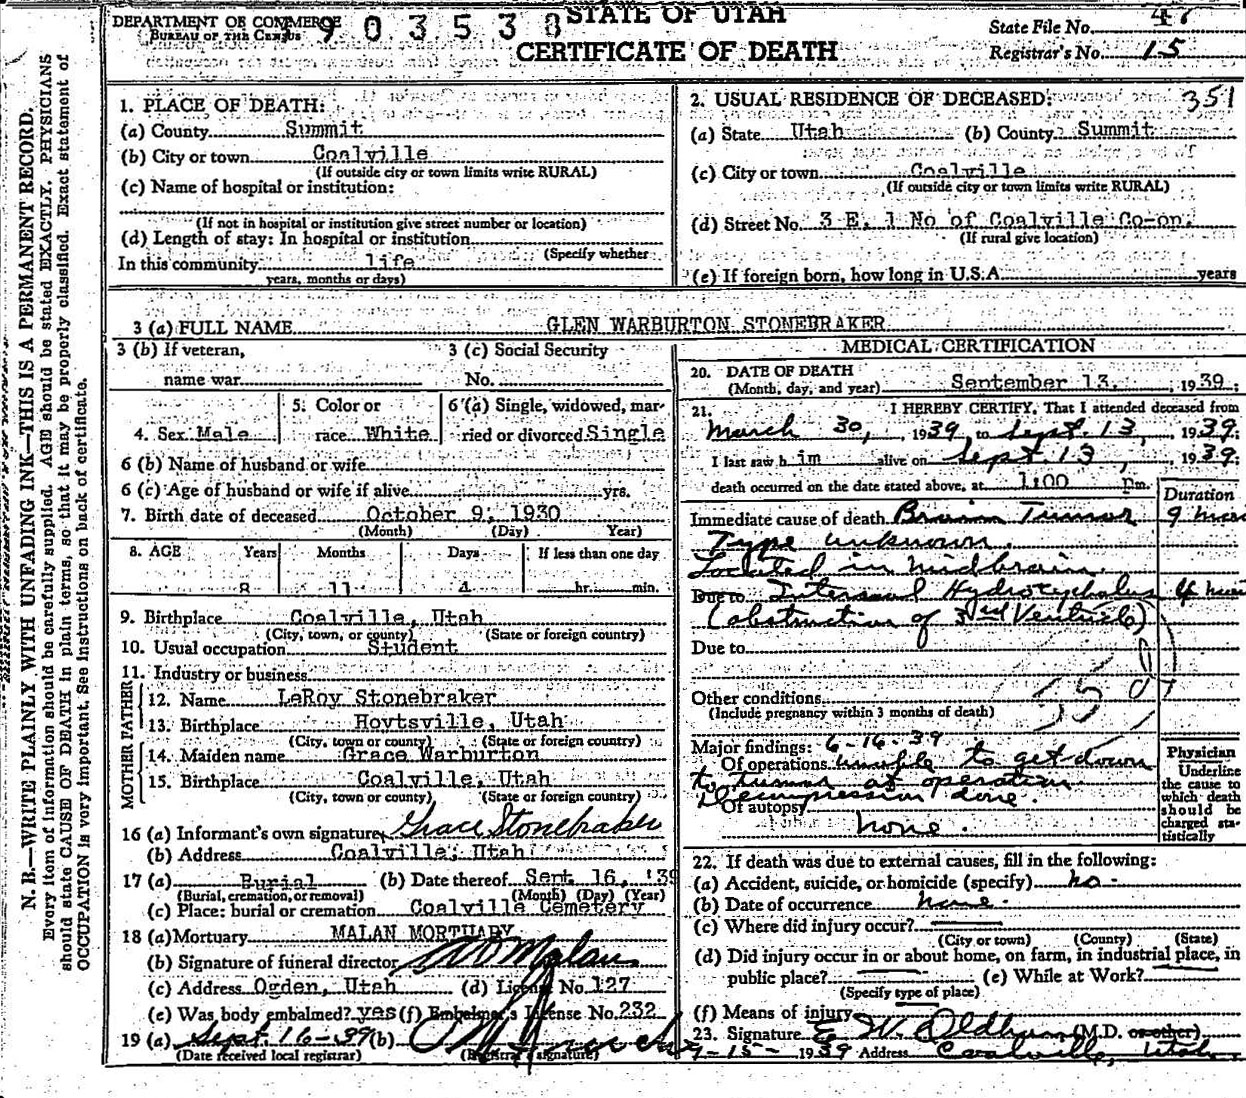 DEPARTMENT OF COMMERCE
BUREAU OF THE CENSUS
903538
STATE OF UTAH
CERTIFICATE OF DEATH
State File No. 
Registrar's No. 15
351
N. B.—WRITE PLAINLY WITH UNFADING INK—THIS IS A PERMANENT RECORD.
Every item of information should be carefully supplied. AGE should be stated EXACTLY. PHYSICIANS
should state CAUSE OF DEATH in plain terms, so that it may be properly classified. Exact statement of
OCCUPATION is very important. See instructions on back of certificate.
1. PLACE OF DEATH:
(a) County Summit
(b) City or town Coalville
(If outside city or town limits write RURAL)
(c) Name of hospital or institution:
(If not in hospital or institution give street number or location)
(d) Length of stay: In hospital or institution
(Specify whether
In this community life
years, months or days)
2. USUAL RESIDENCE OF DECEASED:
(a) State Utah (b) County Summit
(c) City or town Coalville
(If outside city or town limits write RURAL)
(d) Street No. 3 E. 1 No of Coalville Co-op.
(If rural give location)
(e) If foreign born, how long in U.S.A. years
3 (a) FULL NAME GLEN WARBURTON STONEBRAKER
3 (b) If veteran,
name war
3 (c) Social Security
No.
4. Sex Male
5. Color or
race White
6 (a) Single, widowed, mar-
ried or divorced Single
6 (b) Name of husband or wife
6 (c) Age of husband or wife if alive yrs.
7. Birth date of deceased October 9, 1930
(Month) (Day) Year)
8. AGE Years Months Days If less than one day
8 11 4 hr. min.
9. Birthplace Coalville, Utah
(City, town, or county) (State or foreign country)
10. Usual occupation Student
11. Industry or business
FATHER
12. Name LeRoy Stonebraker
13. Birthplace Hoytsville, Utah
(City, town or county) (State or foreign country)
MOTHER
14. Maiden name Grace Warburton
15. Birthplace Coalville, Utah
(City, town or county) (State or foreign country)
16 (a) Informant's own signature Grace Stonebraker
(b) Address Coalville, Utah
17 (a) Burial (b) Date thereof Sept 16, '39
(Burial, cremation, or removal) (Month) (Day) (Year)
(c) Place: burial or cremation Coalville Cemetery
18 (a) Mortuary MALAN MORTUARY
(b) Signature of funeral director Malan
(c) Address Ogden, Utah (d) License No. 127
(e) Was body embalmed? yes (f) Embalmer's License No. 232
19 (a) Sept. 16-39 (b)
(Date received local registrar) (Registrar's signature)
MEDICAL CERTIFICATION
20. DATE OF DEATH
(Month, day, and year) September 13, 1939;
21. I HEREBY CERTIFY, That I attended deceased from
March 30, 1939, to Sept 13, 1939;
I last saw h im alive on Sept 13, 1939;
death occurred on the date stated above, at 1:00 pm.
Duration
Immediate cause of death Brain Tumor 9
Type unknown.
Located in midbrain.
Due to Internal Hydrocephalus 4
(obstruction of 3rd Ventricle)
Due to
Other conditions
(Include pregnancy within 3 months of death)
Major findings: 6-16-39
Of operations unable to get down
to tumor at operation
Decompression done.
Of autopsy
none.
Physician
Underline
the cause to
which death
should be
charged sta-
tistically
22. If death was due to external causes, fill in the following:
(a) Accident, suicide, or homicide (specify) no -
(b) Date of occurrence none -
(c) Where did injury occur?
(City or town) (County) (State)
(d) Did injury occur in or about home, on farm, in industrial place, in
public place? (e) While at Work?
(Specify type of place)
(f) Means of injury
23. Signature E. W. Oldham (M.D. or other)
9-15- 1939 Address Coalville, Utah.